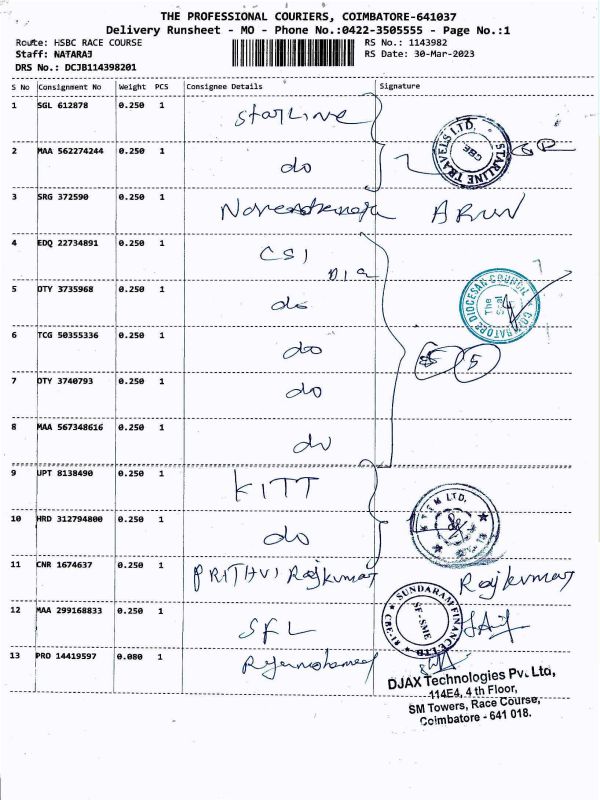 THE PROFESSIONAL COURIERS, COIMBATORE-641037
Delivery Runsheet - MO - Phone No.:0422-3505555 - Page No.:1
Route: HSBC RACE COURSE
RS No.: 1143982
Staff: NATARAJ
RS Date: 30-Mar-2023
DRS No.: DCJB114398201
S No Consignment No Weight PCS Consignee Details Signature
1 SGL 612878 0.250 1 StarLine
2 MAA 562274244 0.250 1 do
STARLINE TRAVELS LTD. CBE
3 SRG 372590 0.250 1 ARUN
4 EDQ 22734891 0.250 1 CSI
Dia
5 OTY 3735968 0.250 1 do
COIMBATORE DIOCESAN COUNCIL The Seal
6 TCG 50355336 0.250 1 do 5
7 OTY 3740793 0.250 1 do
8 MAA 567348616 0.250 1 do
9 UPT 8138490 0.250 1 KITT
10 HRD 312794800 0.250 1 do
11 CNR 1674637 0.250 1 PRITHVI Rajkumar Rajkumar
12 MAA 299168833 0.250 1 SFL
SUNDARAM FINANCE LTD SF-SME
13 PRO 14419597 0.080 1
DJAX Technologies Pvt. Ltd,
114E4, 4 th Floor,
SM Towers, Race Course,
Coimbatore - 641 018.